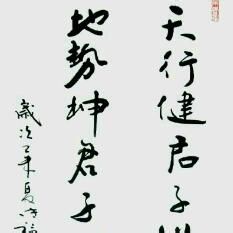 天行健君子
地勢坤君子
歲次乙未夏